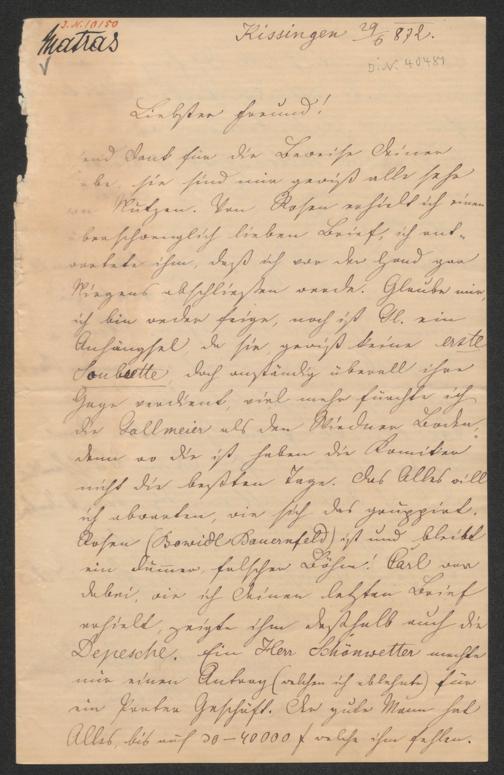 J.N. 10150
Matras
Kissingen 29/6 872.
D.N. 40481
Liebster Freund!
end Dank für die Beweise Deiner
be, sie sind mir gewiß alle sehr
Nutzen. Von Rosen erhielt ich einen
berschwenglich lieben Brief, ich ant-
wortete ihm, daß ich vor der Hand gar
Nirgens abschließen werde. Glaube mir,
ich bin weder feige, noch ist M. ein
Anhängsel da sie gewiß keine erste
Soubrette, doch anständig überall ihre
Gage verdient, viel mehr fürchte ich
die Gallmeier als den Wiedner Boden,
denn wo die ist haben die Komiker
nicht die beßten Tage. Das Alles will
ich abwarten, wie sich das gruppirt.
Rosen (Bowidl Bauernfeld) ist und bleibt
ein dummer, falscher Böhm! Carl war
dabei, wie ich Deinen letzten Brief
erhielt, zeigte ihm deßhalb auch die
Depesche. Ein Herr Schönwetter machte
mir einen Antrag (welchen ich ablehnte) für
ein Prater Geschäft. Der gute Mann hat
Alles, bis auf 30–40000 f welche ihm fehlen.